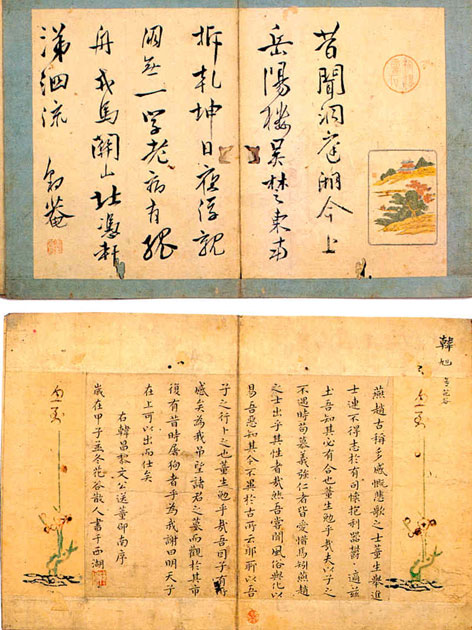 昔聞洞庭湖今上
岳陽樓吳楚東南
拆乾坤日夜浮親
朋無一字老病有孤
舟戎馬關山北憑軒
涕泗流
韓
燕趙古稱多感慨悲歌之士董生舉進
士連不得志於有司懷抱利器鬱〻適茲
土吾知其必有合也董生勉乎哉夫以子之
不遇時苟慕義強仁者皆愛惜焉矧燕趙
之士出乎其性者哉然吾嘗聞風俗與化移
易吾惡知其今不異於古所云邪聊以吾
子之行卜之也董生勉乎哉吾因子有所
感矣為我弔望諸君之墓而觀於其市
復有昔時屠狗者乎為我謝曰明天子
在上可以出而仕矣
右韓昌黎文公送董邵南序
歲在甲子孟冬花谷散人書于西湖